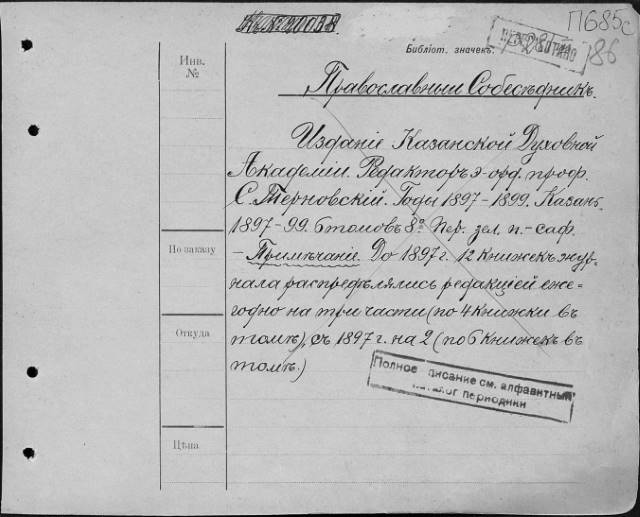 П685с
186
Библіот. значекъ.
Инв.
№
Православный Собесѣдникъ.
Изданіе Казанской Духовной
Академіи. Редакторъ э-орд. проф.
С. Терновскій. Годы 1897-1899. Казань
1897-99. 6 томовъ 8º. Пер. зел. п.-саф.
- Примѣчаніе. До 1897 г. 12 книжекъ жур-
нала распредѣлялись редакціей еже-
годно на три части (по 4 книжки въ
томѣ), съ 1897 г. на 2 (по 6 книжекъ въ
томѣ.)
По заказу
Откуда
Цѣна
Полное описание см. алфавитный
каталог периодики